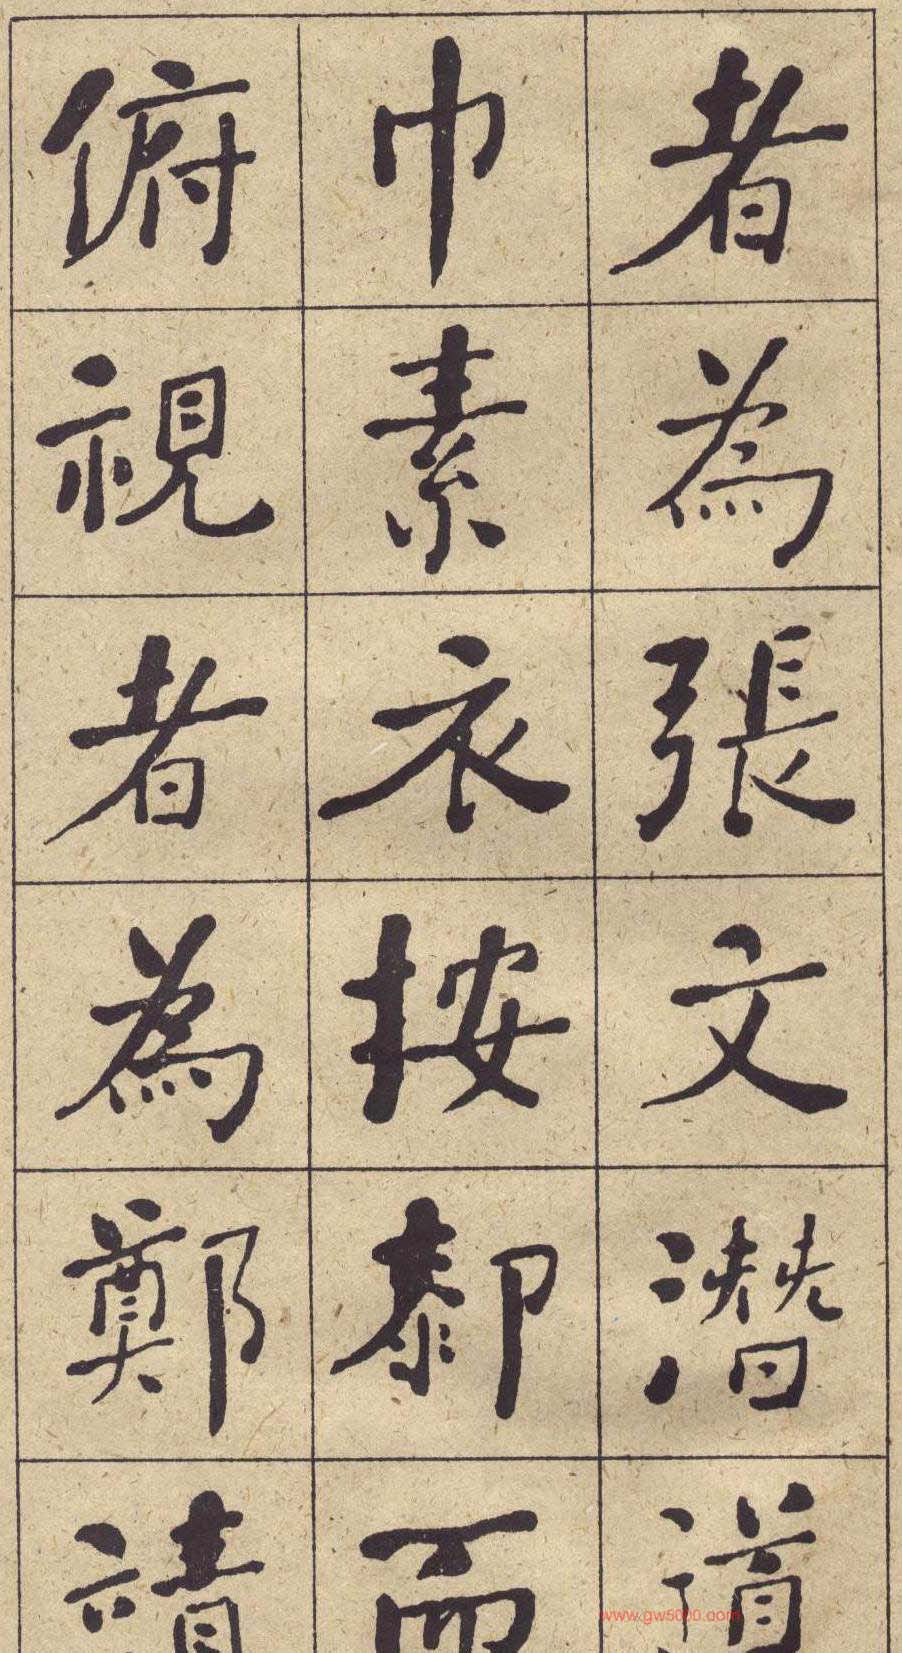 者為張文潛道
巾素衣按𰻮而
俯視者為鄭靖
www.gw5000.com